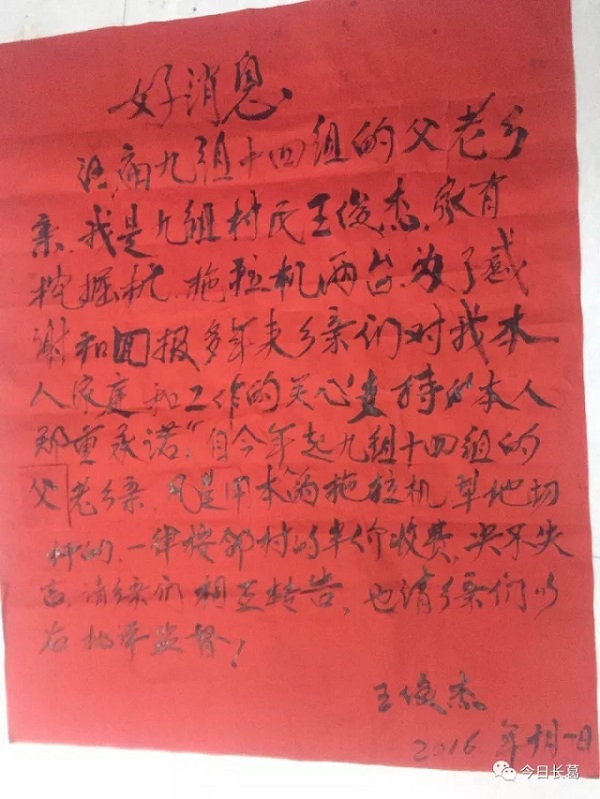 好消息
庙九组十四组的父老乡
亲,我是九组村民王俊杰,家有
挖掘机,拖拉机两台,为了感
谢和回报多年来乡亲们对我本
人家庭和工作的关心支持,本人
郑重承诺:"自今年起九组十四组的
父老乡亲,凡是用本的拖拉机犁地
种的,一律按邻村的半价收费,决不失
言,请乡亲们相互转告,也请乡亲们以
后批评监督!
王俊杰
2016年十月一日
今日长葛